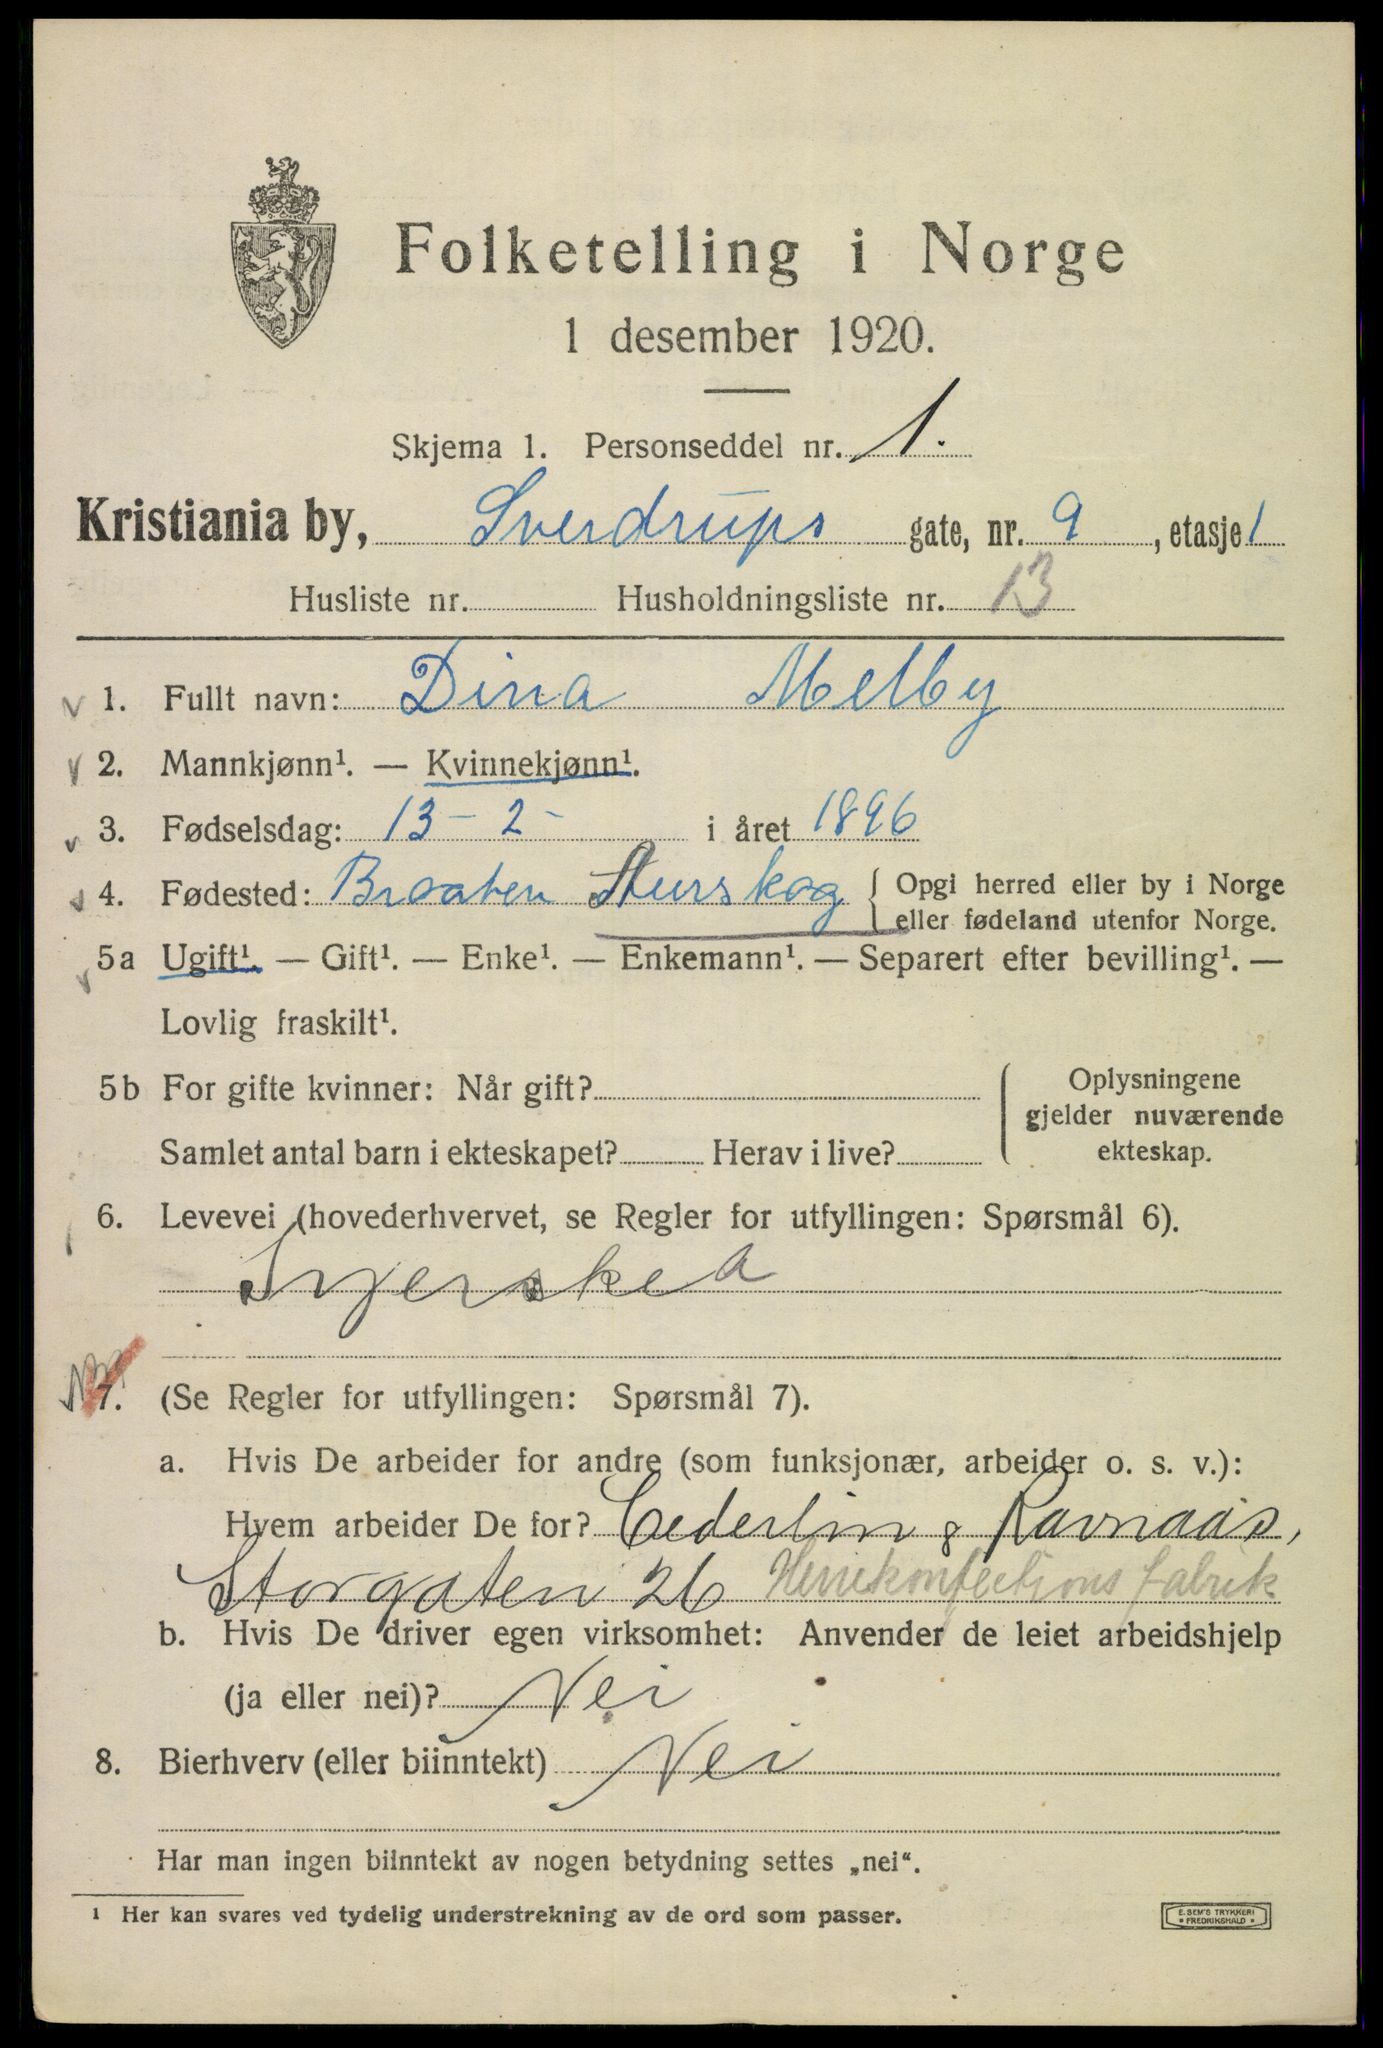 Folketelling i Norge
1 desember 1920.
Skjema 1. Personseddel nr. 1.
Kristiania by, Sverdrups gate, nr. 9, etasje 1
Husliste nr. Husholdningsliste nr. 13
1. Fullt navn: Dina Melby
2. Mannkjønn¹. — Kvinnekjønn¹.
3. Fødselsdag: 13-2- i året 1896
4. Fødested: Braaten Aurskog { Opgi herred eller by i Norge
eller fødeland utenfor Norge.
5a Ugift¹. — Gift¹. — Enke¹. — Enkemann¹. — Separert efter bevilling¹. —
Lovlig fraskilt¹.
5b For gifte kvinner: Når gift? Oplysningene
gjelder nuværende
Samlet antal barn i ekteskapet? Herav i live? ekteskap.
6. Levevei (hovederhvervet, se Regler for utfyllingen: Spørsmål 6).
Syerske a
7. (Se Regler for utfyllingen: Spørsmål 7).
a. Hvis De arbeider for andre (som funksjonær, arbeider o. s. v.):
Hvem arbeider De for? Cederlin & Ravnaas,
Storgaten 26 Herrekonfections fabrik
b. Hvis De driver egen virksomhet: Anvender de leiet arbeidshjelp
(ja eller nei)? Nei
8. Bierhverv (eller biinntekt) Nei
Har man ingen biinntekt av nogen betydning settes „nei“.
¹ Her kan svares ved tydelig understrekning av de ord som passer.
E. SEM'S TRYKKERI
FREDRIKSHALD